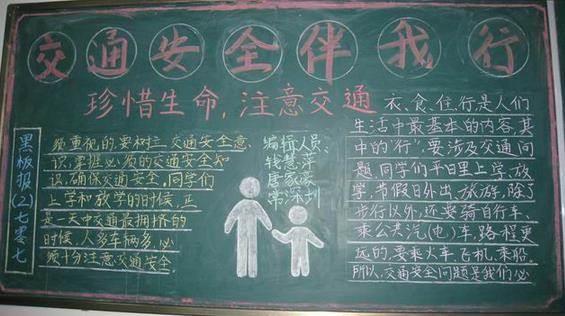 交通安全伴我行
珍惜生命,注意交通
衣、食、住、行,是人们
生活中最基本的内容,其
中的"行"要涉及交通问
题,同学们平日里上学,放
学,节假日外出、旅游,除了
步行以外,还要骑自行车、
乘公共汽(电)车,路程更
远的,要乘火车飞机,乘船,
所以,交通安全问题是我们必
须重视的,要树立交通安全意
识,掌握必须的交通安全知
识,确保交通安全,同学们
上学和放学的时候,正
是一天中交通最拥挤的
时候,人多车辆多,必
须十分注意交通安全.
编辑人员:
钱慧萍
唐家豪
黑板报(2)七零七